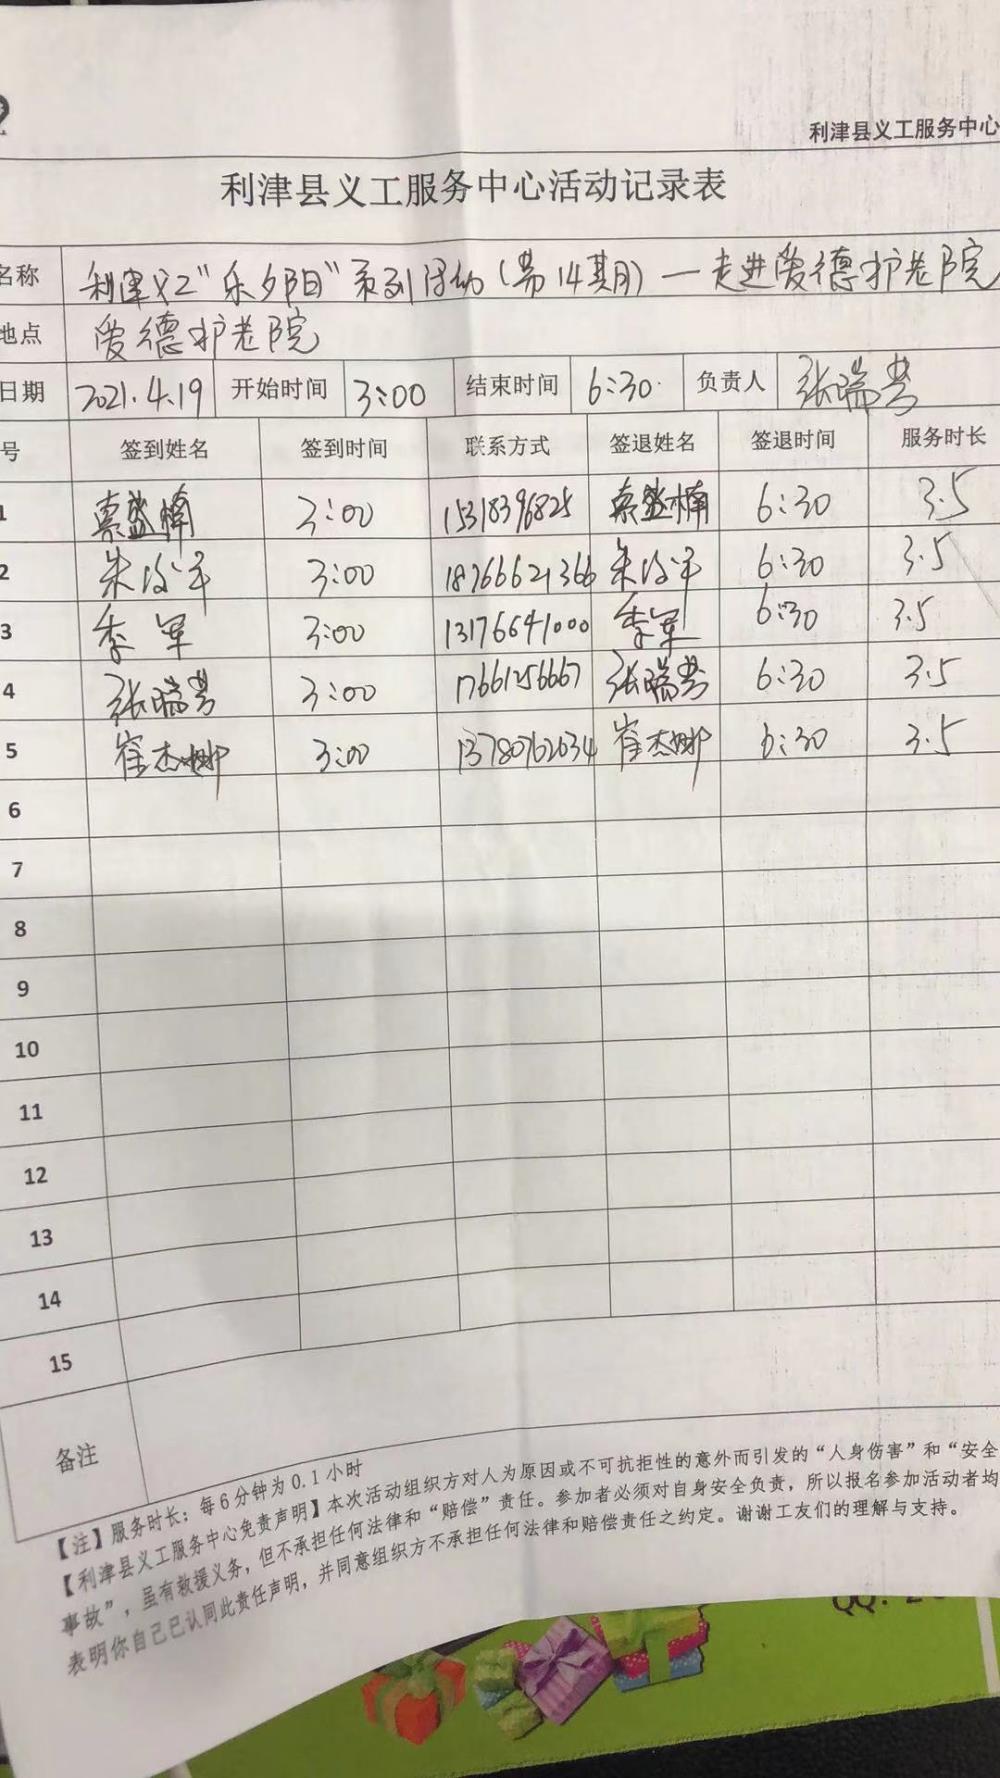 利津县义工服务中心
利津县义工服务中心活动记录表
名称 利津义工“乐夕阳”系列活动(第14期)—走进爱德护老院
地点 爱德护老院
日期 2021.4.19 开始时间 3:00 结束时间 6:30 负责人 张瑞芳
号 签到姓名 签到时间 联系方式 签退姓名 签退时间 服务时长
1 綦盛楠 3:00 15318396825 綦盛楠 6:30 3.5
2 朱 3:00 18766621366 朱 6:30 3.5
3 季军 3:00 13176641000 季军 6:30 3.5
4 张瑞芳 3:00 17661256667 张瑞芳 6:30 3.5
5 崔杰娜 3:00 13780762634 崔杰娜 6:30 3.5
6
7
8
9
10
11
12
13
14
15
备注
【注】服务时长：每6分钟为0.1小时
【利津县义工服务中心免责声明】本次活动组织方对人为原因或不可抗拒性的意外而引发的“人身伤害”和“安全
事故”，虽有救援义务，但不承担任何法律和“赔偿”责任。参加者必须对自身安全负责，所以报名参加活动者均
表明你自己已认同此责任声明，并同意组织方不承担任何法律和赔偿责任之约定。谢谢工友们的理解与支持。
QQ: